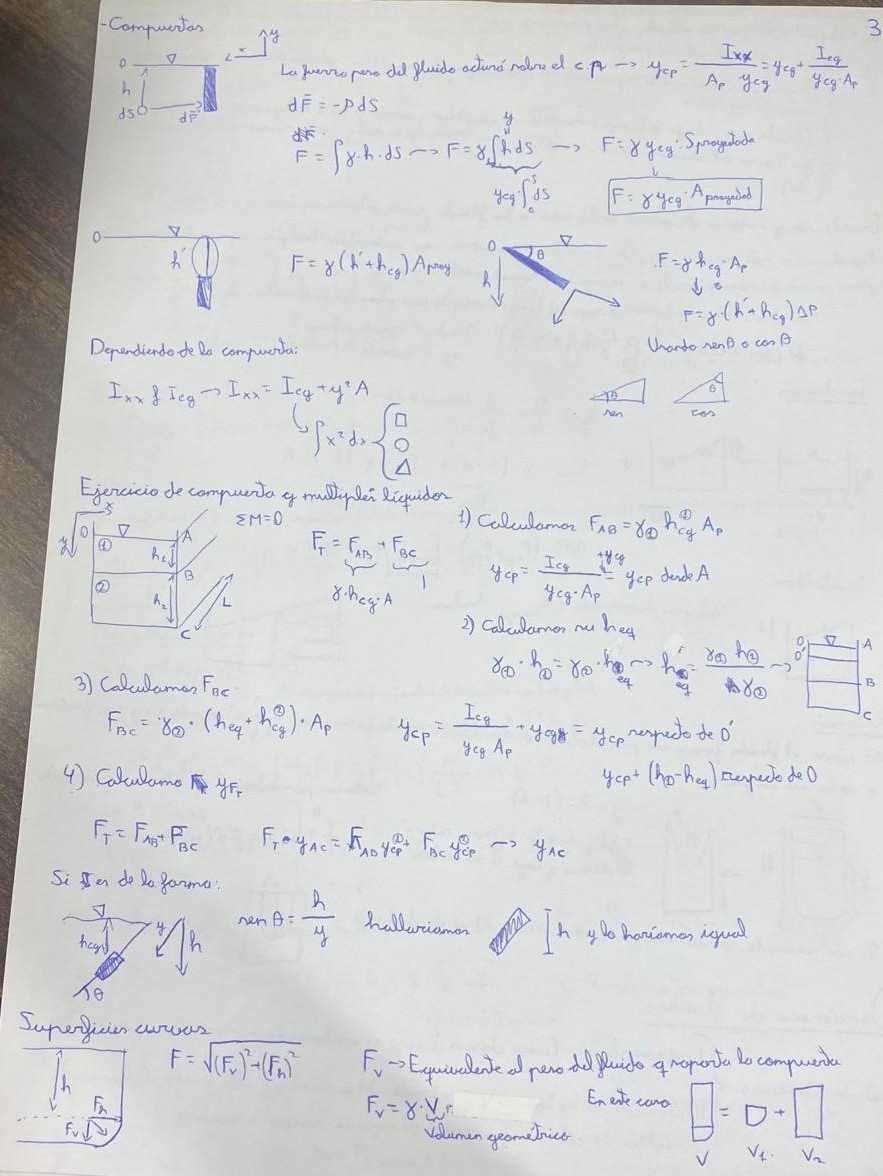 - Compuertas
3
0 x y
h
dS dF̄
La fuerza peso del fluido actuará sobre el c.p. → y_cp = I_xx / (A_p y_cg) = y_cg + I_cg / (y_cg · A_p)
dF̄ = -p dS
F = ∫ γ · h · dS → F = γ ∫ h dS → F = γ y_cg · S proyectada
y
y_cg · ∫₀ˢ dS
F = γ y_cg · A proyectad
0
h'
F = γ (h' + h_cg) A proy
0 θ
h
F = γ h_cg · A_p
↓ o
F = γ · (h' + h_cg) AP
Usando sen θ o cos θ
θ sen
θ cos
Dependiendo de la compuerta:
I_xx y I_cg → I_xx = I_cg + y² A
↳ ∫ x² dx { □ ○ △
Ejercicio de compuerta y multiples líquidos
x y 0 ① ② h₁ h₂ A B C L
ΣM = 0
F_T = F_AB + F_BC
γ · h_cg · A
1) Calculamos F_AB = γ① h_cg^① A_p
y_cp = I_cg / (y_cg · A_p) + y_cg = y_cp desde A
2) Calculamos su h_eq
γ① · h① = γ② · h_eq → h_eq = γ① h① / γ② →
0 0' A B C
3) Calculamos F_BC
F_BC = γ② · (h_eq + h_cg^②) · A_p
y_cp = I_cg / (y_cg A_p) + y_cg = y_cp respecto de 0'
y_cp + (h① - h_eq) respecto de 0
4) Calculamo y_FT
F_T = F_AB + F_BC
F_T · y_AC = F_AB y_cp^① + F_BC y_cp^② → y_AC
Si es de la forma:
h_cg y h θ
sen θ = h / y
hallaríamos
h y lo haríamos igual
Superficies curvas
h
F_h
F_v
F = √((F_v)² + (F_h)²)
F_v → Equivalente al peso del fluido q soporta la compuerta
F_v = γ · V
Volumen geométrico
En este caso
= +
V V₁ V₂